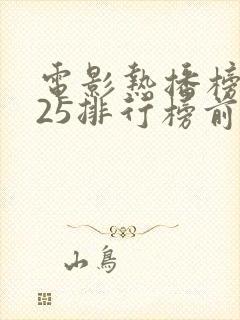 電影熱播榜
25排行榜前
山鳥